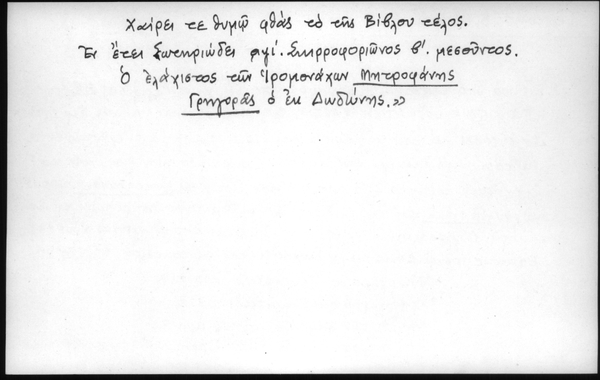 Χαίρει τε θυμῷ φθὰς τὸ τῆς Βίβλου τέλος.
Ἐν ἔτει Σωτηριώδει αψί. Σκιρροφοριῶνος β'. μεσοῦντος.
Ὁ ἐλάχιστος τῶν Ἱρομονάχων Μητροφάνης
Γρηγορᾶς ὁ ἐκ Δωδώνης.»